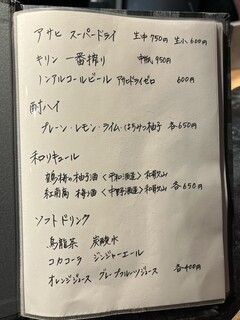 アサヒ スーパードライ 生中 750円 生小 600円
キリン 一番搾り 中瓶 950円
ノンアルコールビール アサヒドライゼロ 600円
酎ハイ
プレーン・レモン・ライム・はちみつ柚子 各650円
和リキュール
鶴梅の柚子酒〈平和酒造〉和歌山
紅南高 梅酒〈中野酒造〉和歌山 各650円
ソフトドリンク
烏龍茶 炭酸水
コカコーラ ジンジャーエール
オレンジジュース グレープフルーツジュース 各400円